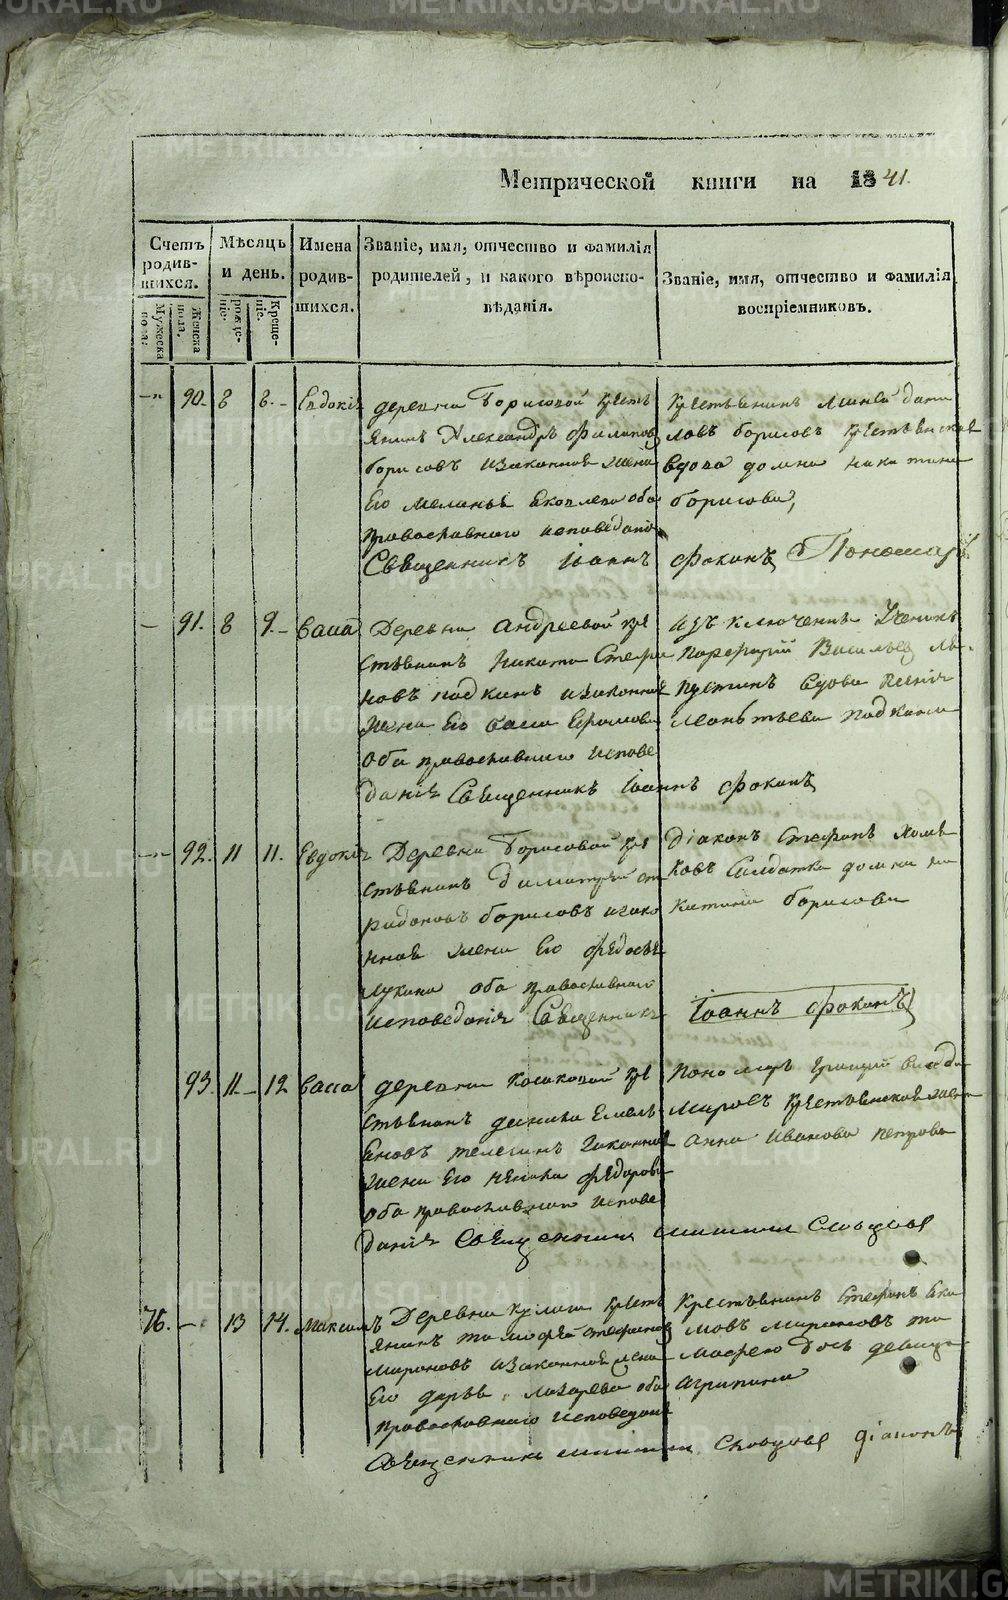 Метрической книги на 1841.
Счетъ родив-шихся.
Мужеска пола.
Женска пола.
Мѣсяцъ и день.
рожде-ніе.
Креще-ніе.
Имена родив-шихся.
Званіе, имя, отчество и фамилія родителей, и какого вѣроиспо-вѣданія.
Званіе, имя, отчество и фамилія воспріемниковъ.
90. 8 8. Евдокія
деревни Борисовой кресть
янинъ Александръ Филипов
борисовъ изаконная жена
Его Меланья Яковлева оба
православнаго исповедания
Крестьянинъ Миней дани
ловъ борисовъ крестьянская
вдова домна никитина
борисова,
Священникъ Іоаннъ Фокинъ Пономарь
91. 8 9. Васса
Деревни Андреевой кре
стьянинъ Никита Степа
новъ подкинъ изаконная
жена Его Васса
оба православнаго испове
данія Священникъ Іоаннъ Фокинъ
Порфирій Васильев
вдова
подкина
92. 11 11. Евдокія
Деревни Борисовой кре
стьянинъ Димитрій сп
ридоновъ борисовъ изако
нная жена Его Федосья
лукина оба православнаго
исповеданія Священникъ Іоаннъ Фокинъ
Діаконъ Стефанъ Хомя
ковъ Салдатка домна ни
китина борисова
93. 11 12 Васса
деревни Косиковой кре
стьянинъ данила Емель
яновъ телегинъ Законная
жена Его Ненила Федорова
оба православнаго испове
данія Священникъ Словцовъ
Пономарь Григорій Влади
мировъ крестьянская жена
Анна Иванова петрова
76. 13 14. Максимъ
Деревни кресть
янинъ тимофей стефанов
мироновъ изаконная жена
Его дарья лазарева оба
православнаго исповедания
Священникъ Словцовъ діаконъ
Крестьянинъ Стефанъ Яки
мовъ мироновъ ти
мофеева дочь девица
Агрипина
METRIKI.GASO-URAL.RU